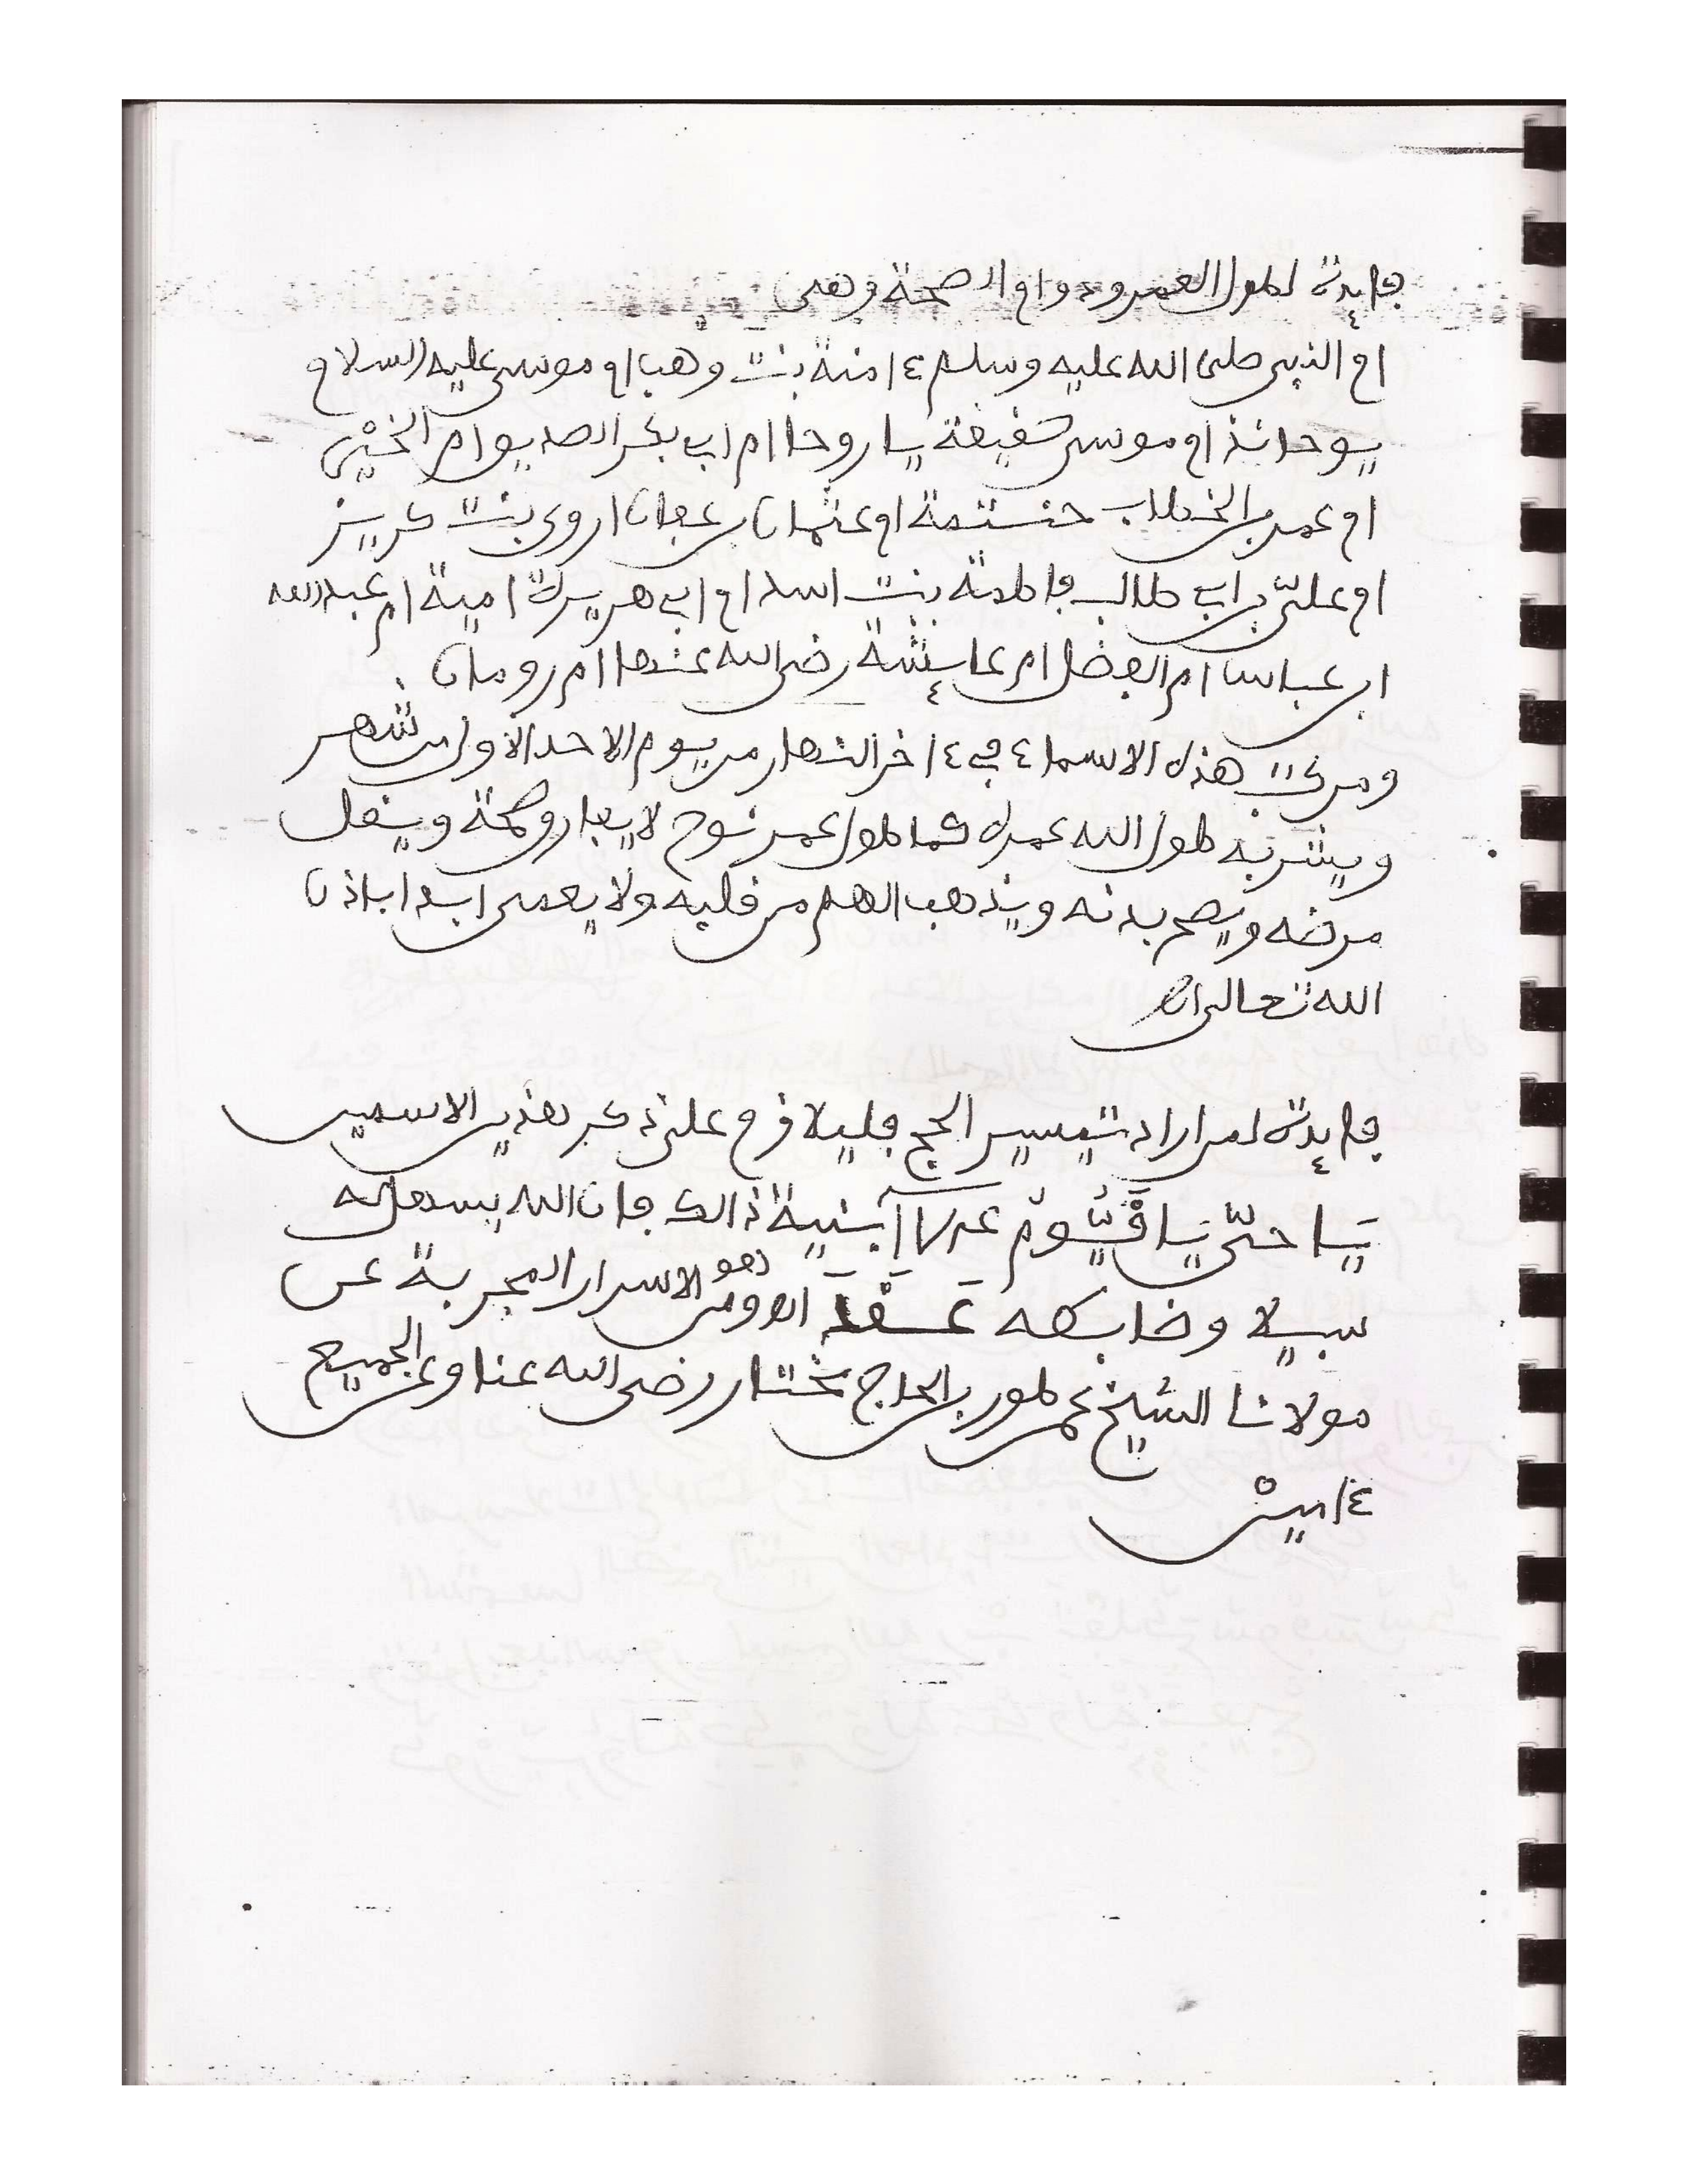 فايدة لطول العمر ودوام الصحة وهي
ام النبي صلى الله عليه وسلم ءامنة بنت وهب ام موسى عليه السلام
يوحانذ ام موسى شفيقة يا روحا ام ابي بكر الصديق ام الخير
ام عمر بن الخطاب حنتمة ام عثمان بن عفان اروى بنت كريز
ام علي بن ابي طالب فاطمة بنت اسد ام ابي هريرة امية ام عبد الله
ابن عباس ام الفضل ام عايشة رضي الله عنها ام رومان
ومن كتب هذه الاسماء في ءاخر النهار من يوم الاحد الاول من شهر
ويشربه طول الله عمره كما طول عمر نوح لا يفارو صحة وينفل
مرضه ويصح بدنه ويذهب الهم من قلبه ولا يعمى ابدا باذن
الله تعالى اه
فايدة لمن اراد تيسير الحج فليلازم على ذكر هذين الاسمين
يَا حيّ يَا قَيُّومُ بنية ذالك فان الله يسهل له
سبيلا وضابطه الاسرار المجربة عن
مولانا الشيخ بن الحاج مختار رضي الله عنا وعن الجميع
ءامين